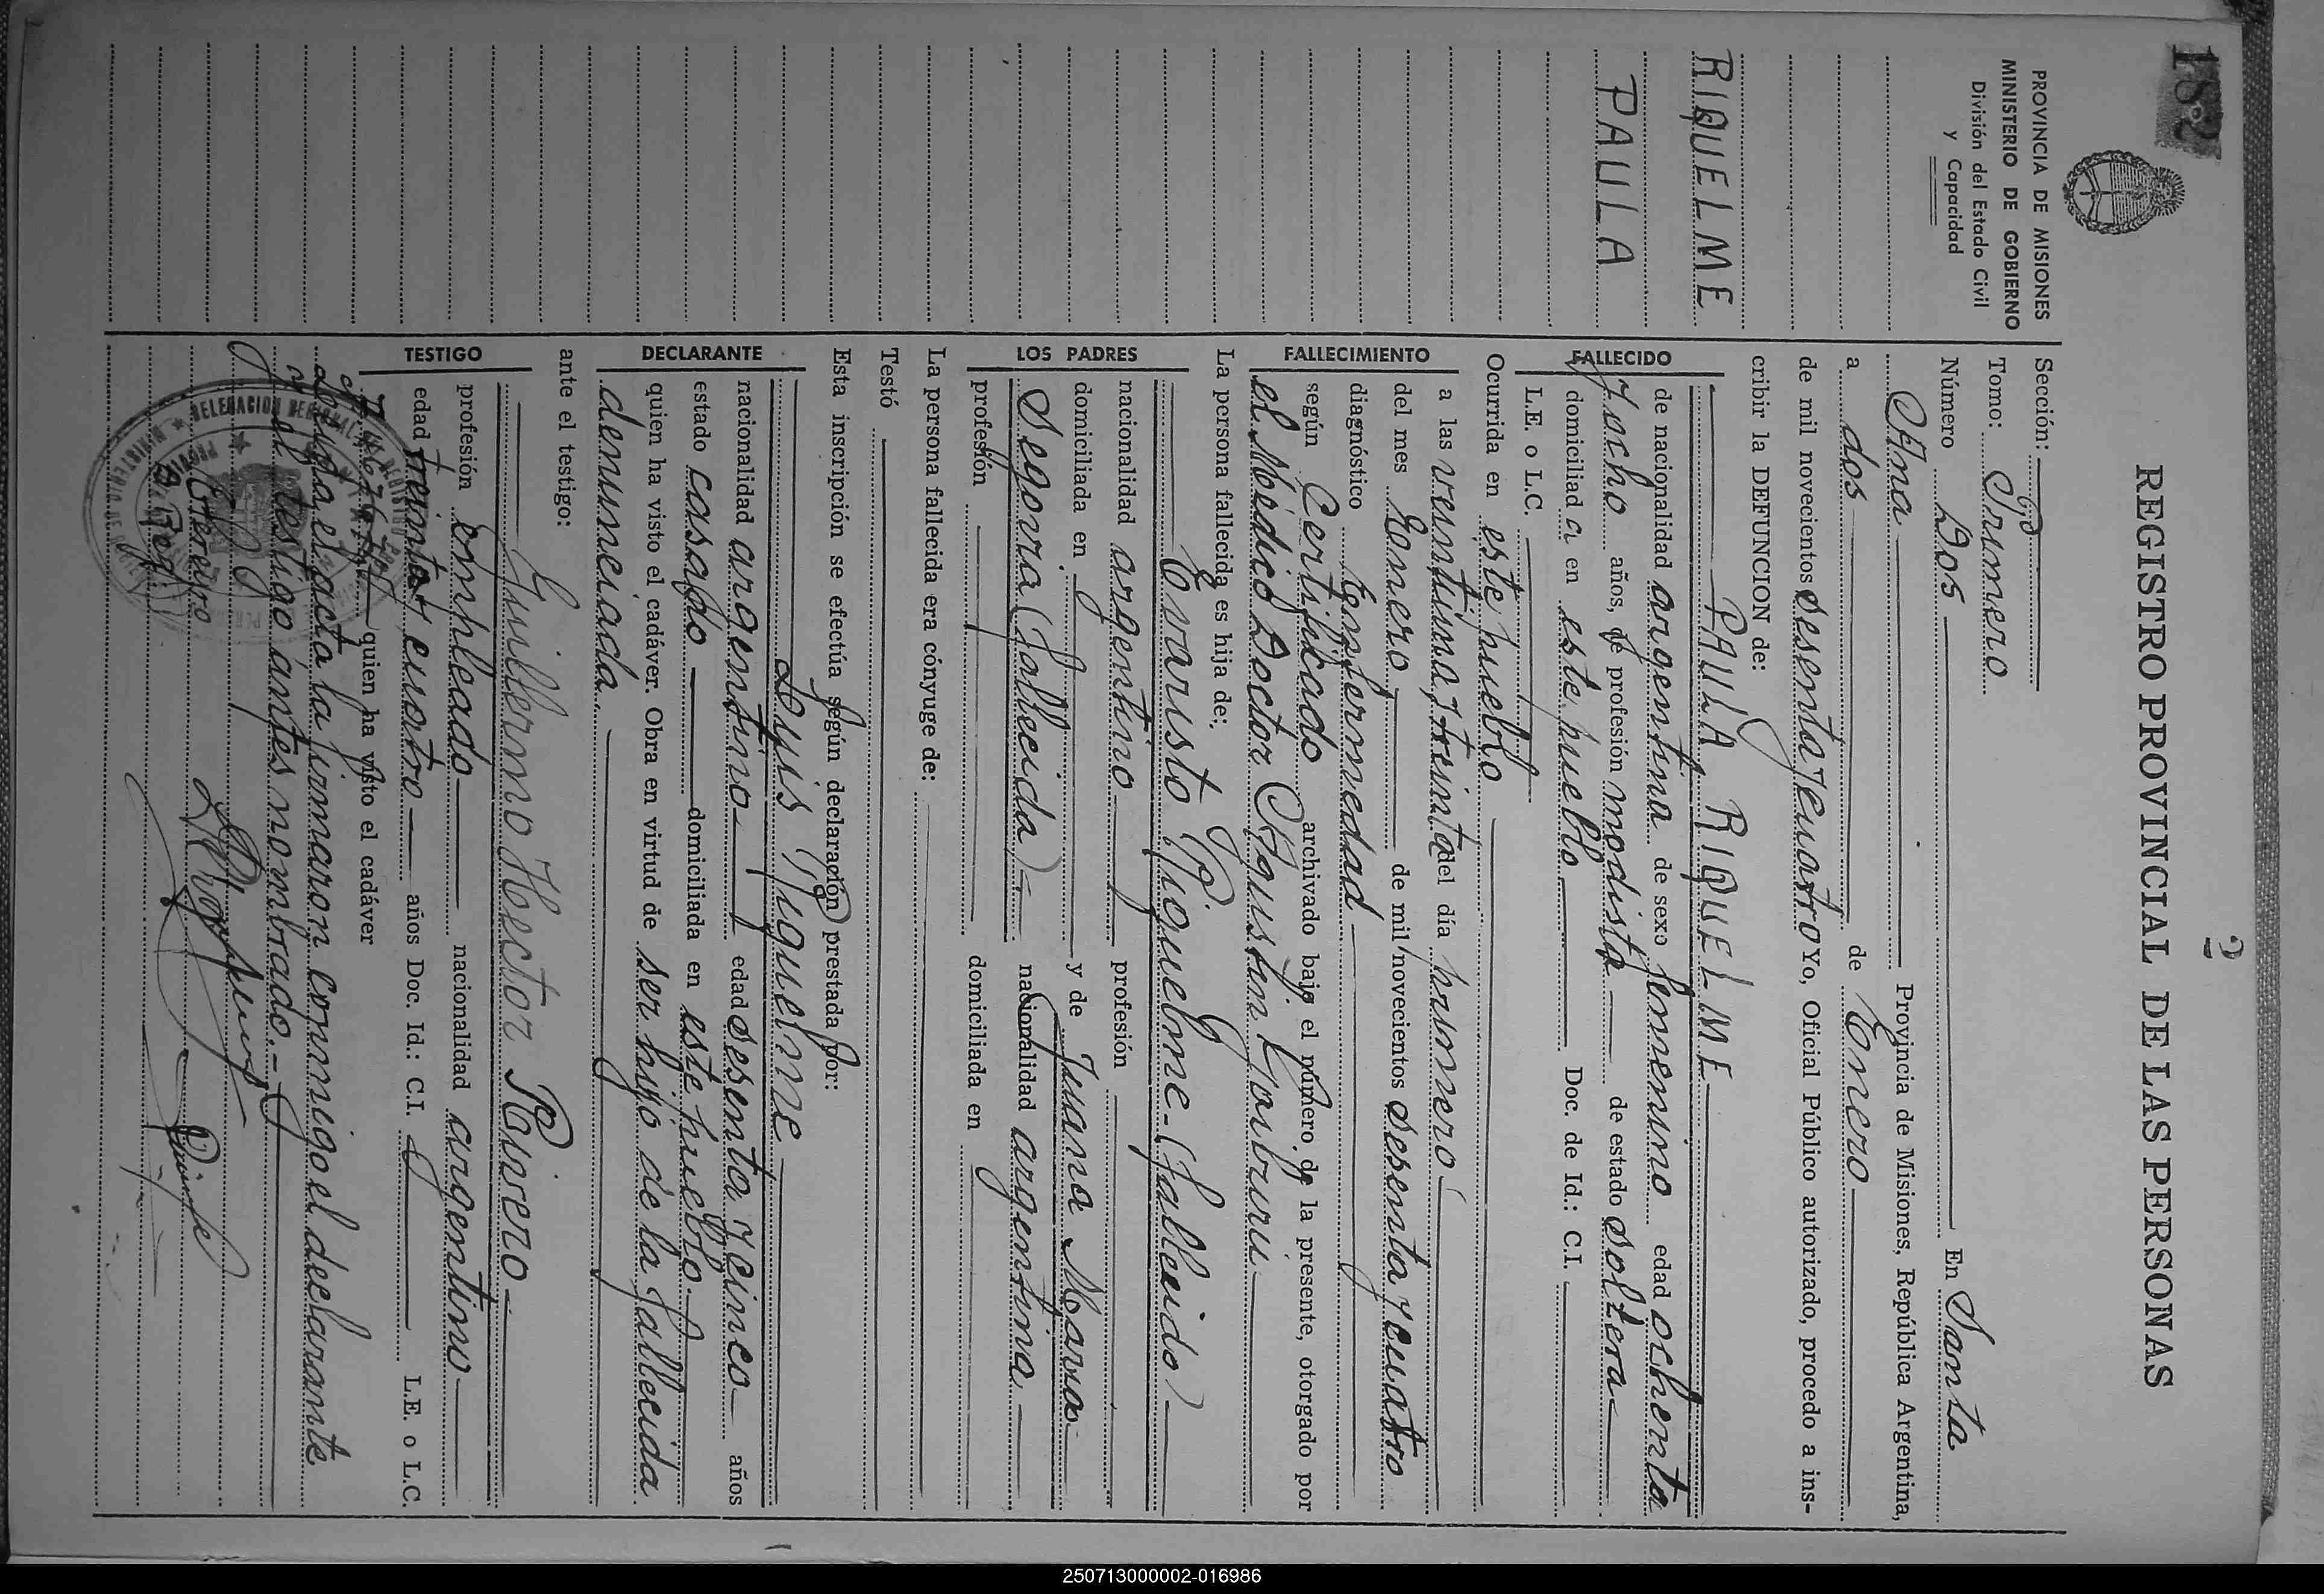 182
2
REGISTRO PROVINCIAL DE LAS PERSONAS
PROVINCIA DE MISIONES
MINISTERIO DE GOBIERNO
División del Estado Civil
y Capacidad
RIQUELME
PAULA
Sección:
Tomo: Primero
Número Dos En Santa
Ana Provincia de Misiones, República Argentina,
a dos de Enero
de mil novecientos sesenta y cuatro Yo, Oficial Público autorizado, procedo a ins-
cribir la DEFUNCION de:
PAULA RIQUELME
FALLECIDO
de nacionalidad argentina de sexo femenino edad ochenta
y ocho años, de profesión modista de estado soltera
domiciliada en este pueblo Doc. de Id.: C.I.
L.E. o L.C.
Ocurrida en este pueblo
FALLECIMIENTO
a las veintiuna y treinta del día primero
del mes Enero de mil novecientos sesenta y cuatro
diagnóstico Enfermedad
según Certificado archivado bajo el número de la presente, otorgado por
el Médico Doctor Agustin
La persona fallecida es hija de:
Evaristo Riquelme - (fallecido)
LOS PADRES
nacionalidad argentino profesión
domiciliada en y de Juana María
Segovia (fallecida) - nacionalidad argentina
profesión domiciliada en
La persona fallecida era cónyuge de:
Testó
Esta inscripción se efectúa según declaración prestada por:
Luis Riquelme
DECLARANTE
nacionalidad argentino edad sesenta y cinco años
estado casado domiciliada en este pueblo
quien ha visto el cadáver. Obra en virtud de ser hijo de la fallecida
denunciada.
ante el testigo:
Guillermo Hector Piñero
TESTIGO
profesión empleado nacionalidad argentino
edad treinta y cuatro años Doc. Id.: C.I. L.E. o L.C.
quien ha visto el cadáver
Leída el acta la firmaron conmigo el declarante
y el testigo antes nombrado.-
250713000002-016986